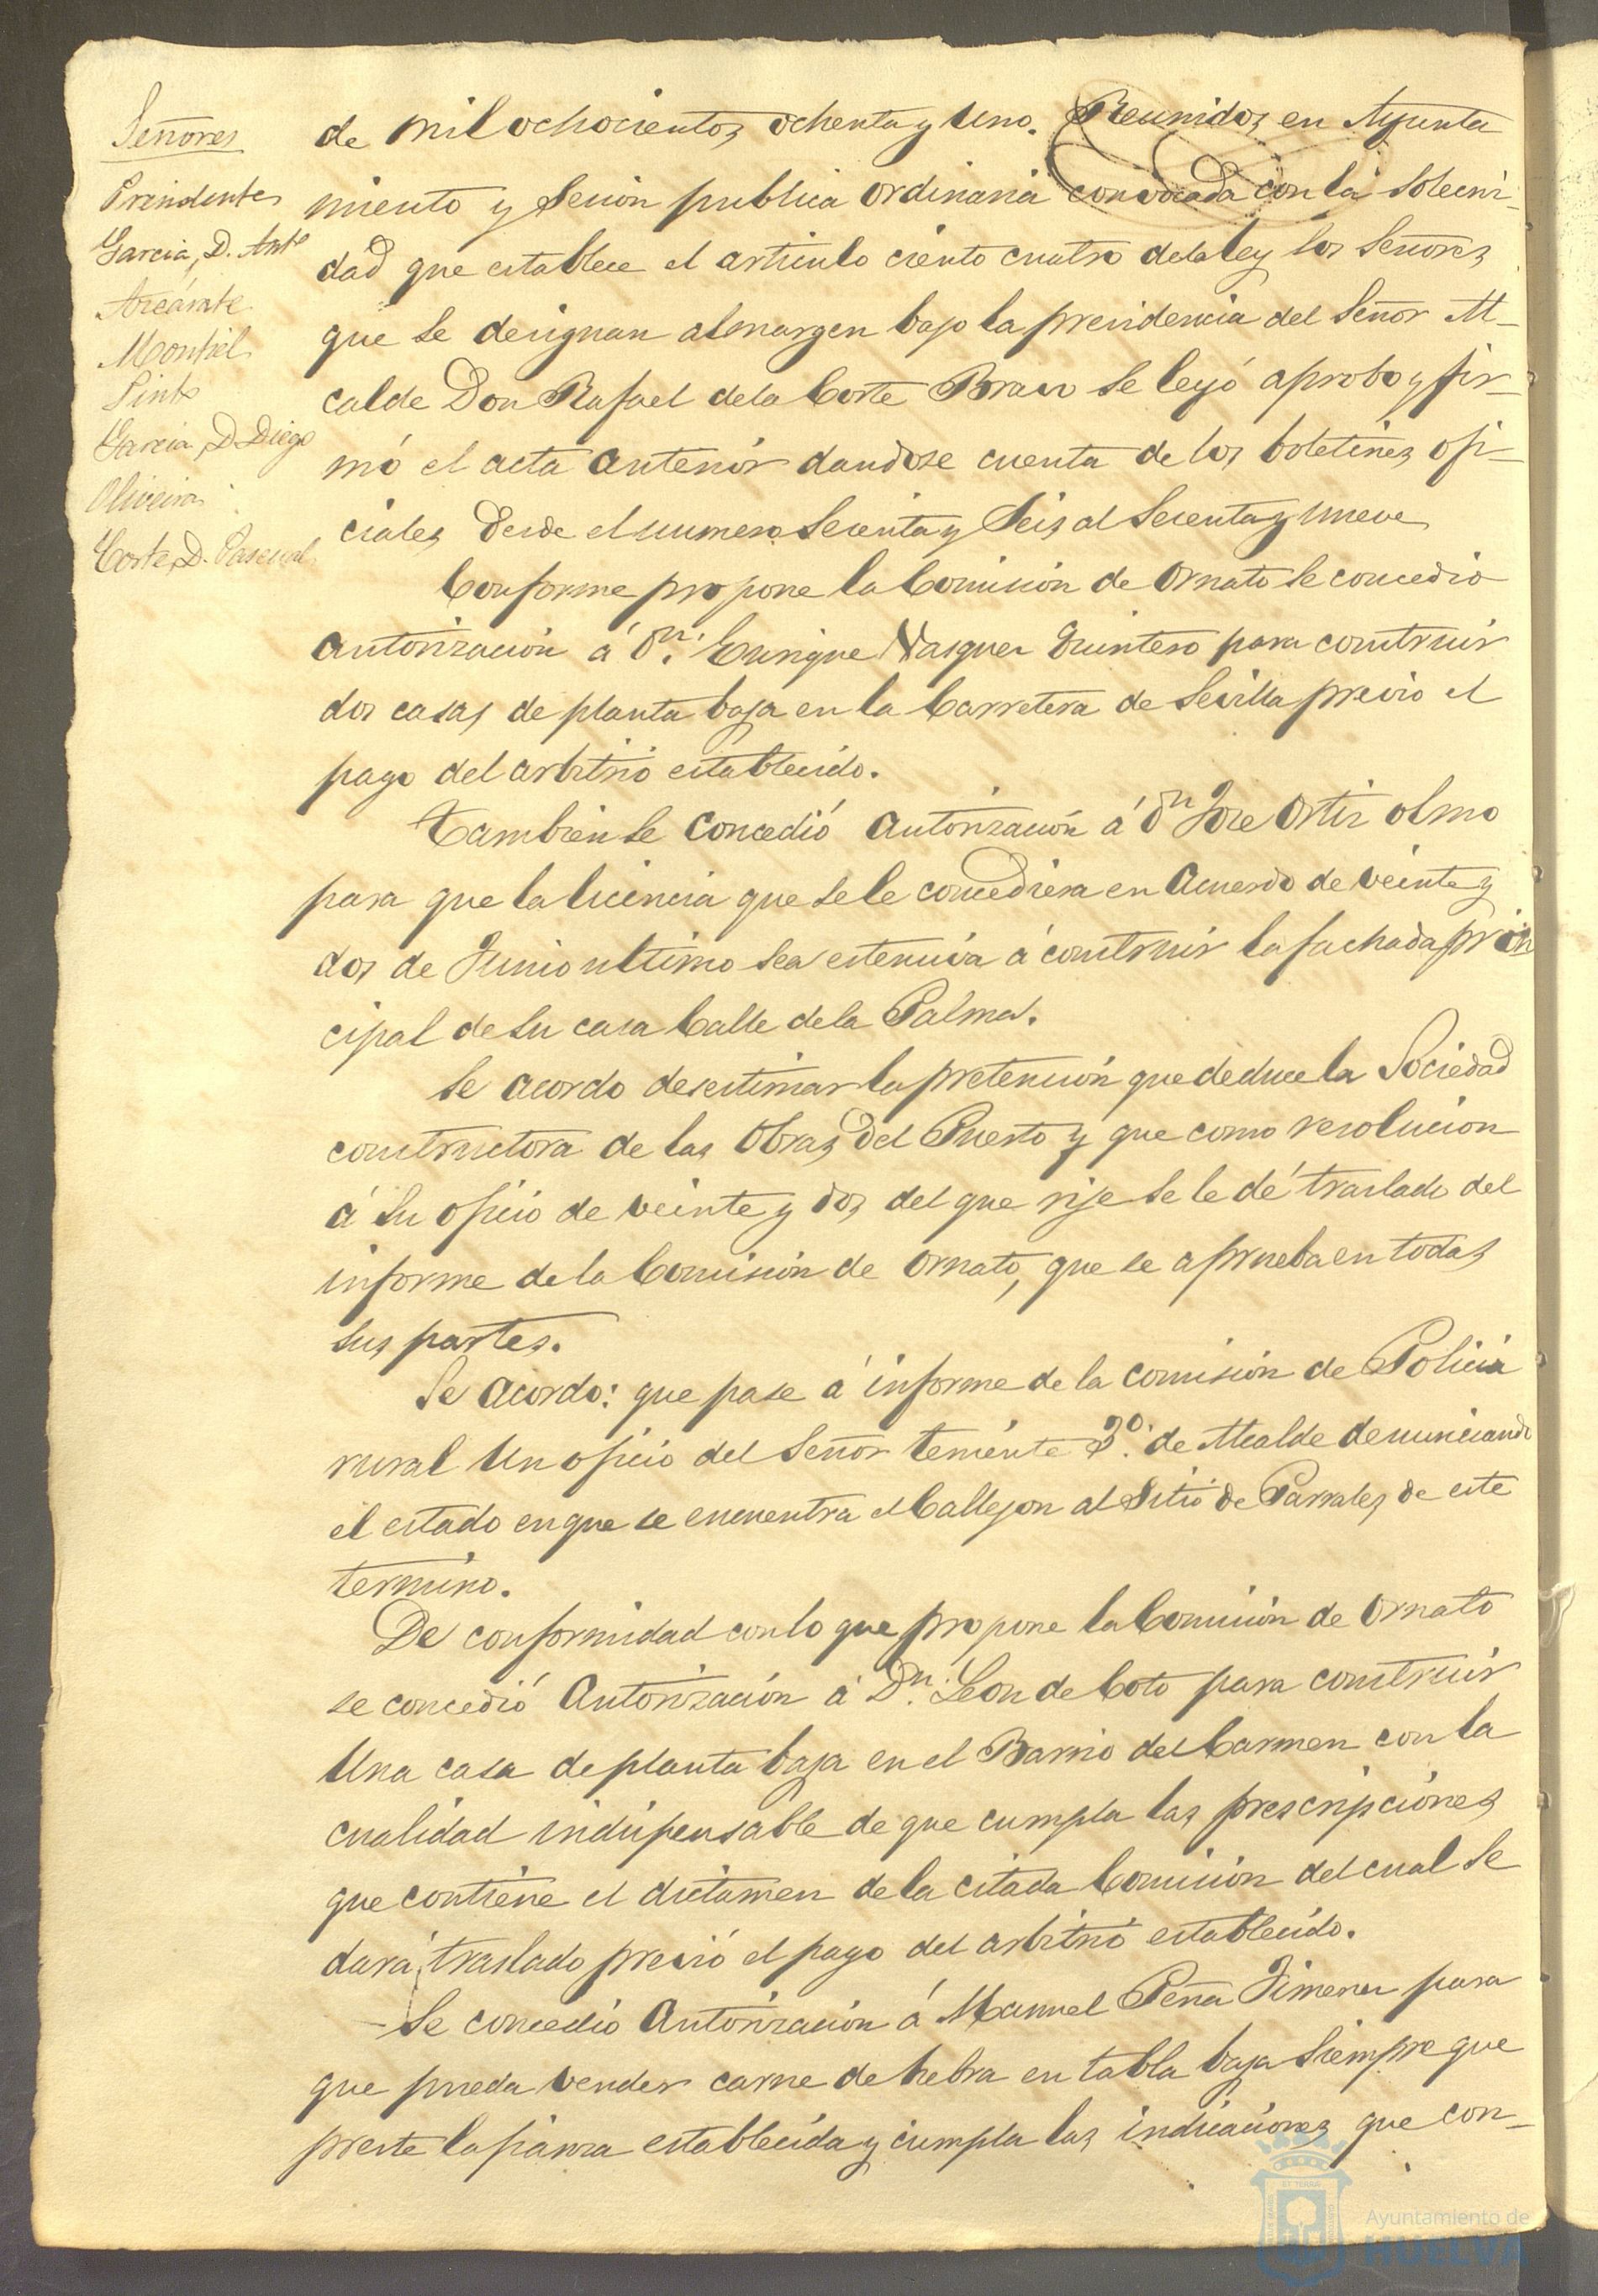 Señores
Presidente
Garcia, D. Antº
Azcárate
Montiel
Pinto
Garcia, D. Diego
Oliveira
Corte, D. Pascual
de mil ochocientos ochenta y uno. Reunidos en Ayunta
miento y sesion publica ordinaria convocada con la solemni-
dad que establece el articulo ciento cuatro de la ley los Señores
que se designan al margen bajo la presidencia del Señor Al-
calde Don Rafael de la Corte Bravo se leyó aprobo y fir-
mó el acta anterior dandose cuenta de los boletines ofi-
ciales desde el numero sesenta y seis al sesenta y nueve
Conforme propone la Comision de Ornato se concedio
autorización á Dn. Enrique Vasquez Quintero para construir
dos casas de planta baja en la Carretera de Sevilla previo el
pago del arbitrio establecido.
Tambien se concedió autorización á Dn Jose Ortiz olmo
para que la licencia que se le concediera en acuerdo de veinte y
dos de Junio ultimo sea estensiva á construir la fachada prin
cipal de su casa Calle de la Palma.
Se acordo desestimar la pretensión que deduce la Sociedad
constructora de las Obras del Puerto y que como resolucion
á su oficio de veinte y dos del que rije se le dé traslado del
informe de la Comisión de Ornato, que se aprueba en todas
sus partes.
Se acordo: que pase á informe de la comisión de Policia
rural un oficio del Señor teniente 3º. de Alcalde denunciando
el estado en que se encuentra el Callejon al Sitio de Parrales de este
termino.
De conformidad con lo que propone la Comision de Ornato
se concedió autorización á Dn. Leon de Coto para construir
una casa de planta baja en el Barrio del Carmen con la
cualidad indispensable de que cumpla las prescripciones
que contiene el dictamen de la citada Comision del cual se
dará traslado previo el pago del arbitrio establecido.
Se concedió autorización á Manuel Peña Jimenez para
que pueda vender carne de hebra en tabla baja siempre que
preste la fianza establecida y cumpla las indicaciones que con-
Ayuntamiento de
HUELVA